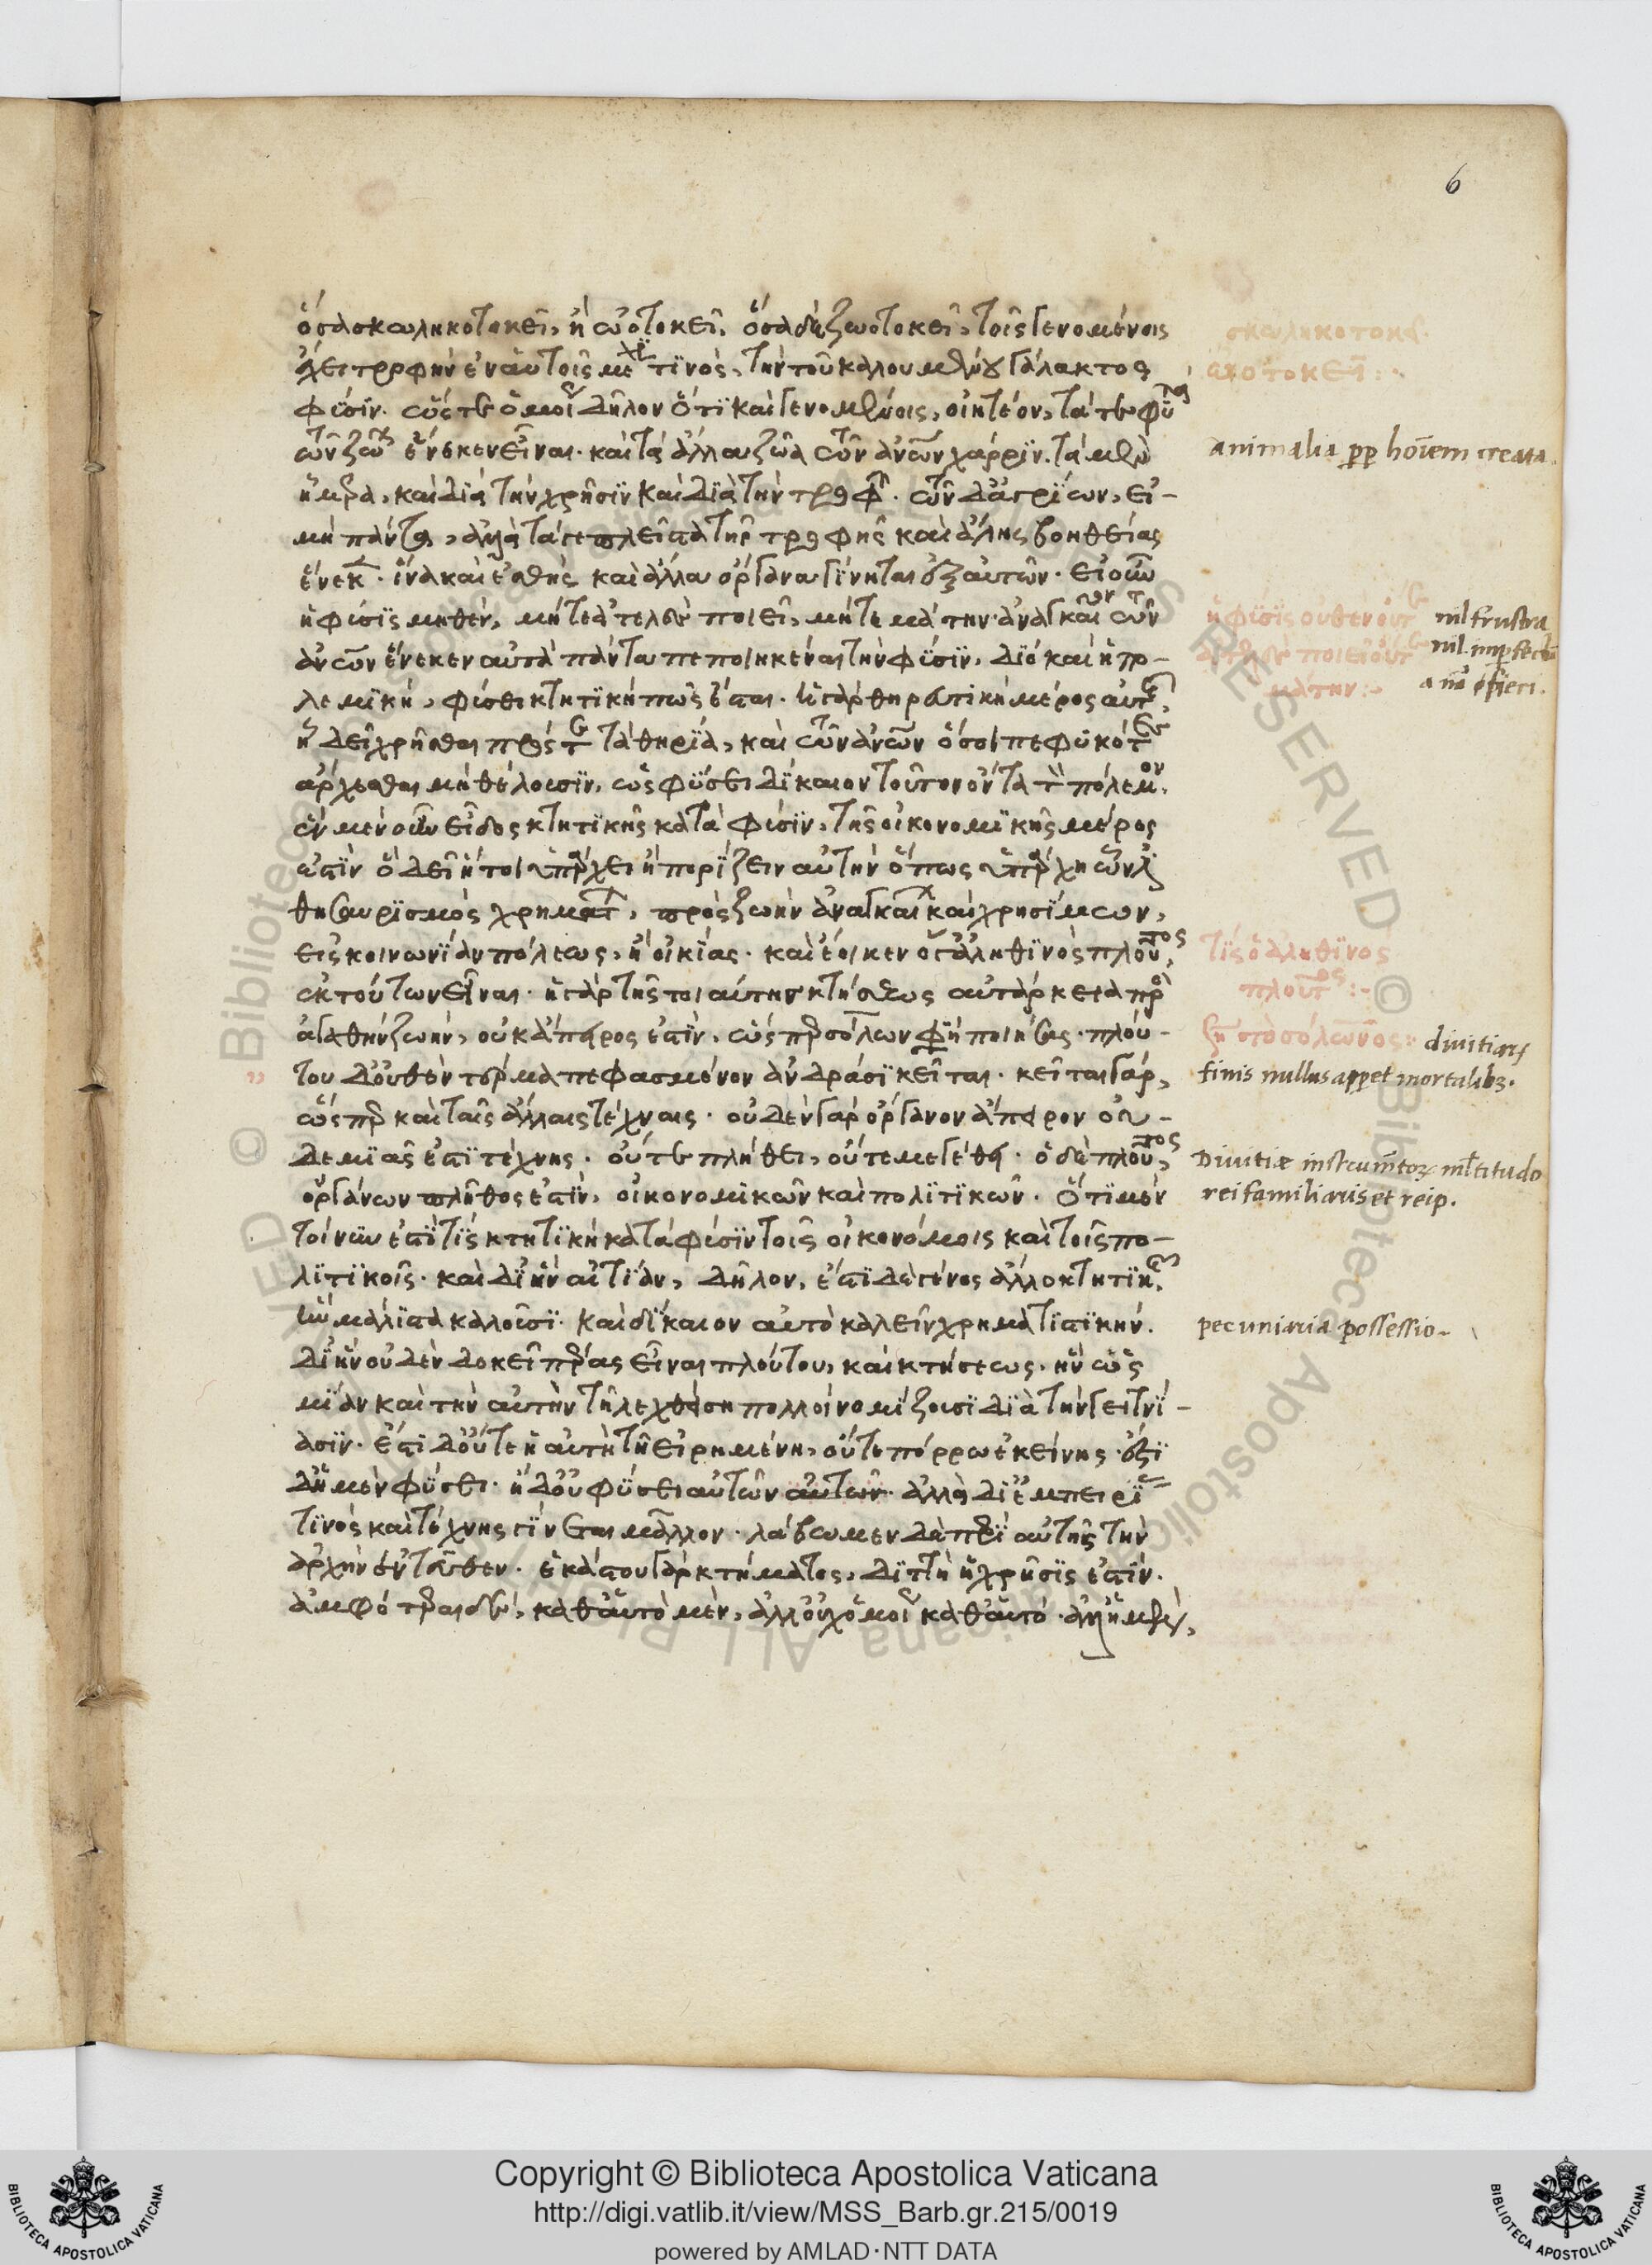 6
ὅσα σκωληκοτοκεῖ, ἢ ὠοτοκεῖ. ὅσα δὲ ζωοτοκεῖ, τοῖς γενομένοις
ἔχει τροφὴν ἐν αὑτοῖς μέχρι τινὸς, τὴν τοῦ καλουμένου γάλακτος
φύσιν. ὥστε ὁμοίως δῆλον ὅτι καὶ γενομένοις, οἰητέον, τά τε φυτὰ
τῶν ζώων ἕνεκεν εἶναι. καὶ τὰ ἄλλα ζῶα τῶν ἀνων χάριν. τὰ μὲν
ἥμερα, καὶ διὰ τὴν χρῆσιν καὶ διὰ τὴν τροφήν. τῶν δ' ἀγρίων, εἰ
μὴ πάντα, ἀλλὰ τά γε πλεῖστα τῆς τροφῆς καὶ ἄλλης βοηθείας
ἕνεκεν. ἵνα καὶ ἐσθὴς καὶ ἄλλα ὄργανα γίνηται ἐξ αὐτῶν. εἰ οὖν
ἡ φύσις μηθὲν, μήτε ἀτελὲς ποιεῖ, μήτε μάτην. ἀναγκαῖον τῶν
ἀνων ἕνεκεν αὐτὰ πάντα πεποιηκέναι τὴν φύσιν. διό καὶ ἡ πο-
λεμικὴ, φύσει κτητική πως ἔσται. ἡ γὰρ θηρευτικὴ μέρος αὐτῆς,
ἧ δεῖ χρῆσθαι πρός τε τὰ θηρία, καὶ τῶν ἀνων ὅσοι πεφυκότες
ἄρχεσθαι μὴ θέλουσιν. ὡς φύσει δίκαιον τοῦτον ὄντα τὸν πόλεμον.
ἓν μὲν οὖν εἶδος κτητικῆς κατὰ φύσιν, τῆς οἰκονομικῆς μέρος
ἐστὶν ὃ δεῖ ἤτοι ὑπάρχειν ἢ πορίζειν αὐτὴν ὅπως ὑπάρχη ὧν ἐστι
θησαυρισμὸς χρημάτων, πρὸς ζωὴν ἀναγκαίων καὶ χρησίμων,
εἰς κοινωνίαν πόλεως, ἢ οἰκίας. καὶ ἔοικεν ὅ γ' ἀληθινὸς πλοῦτος
ἐκ τούτων εἶναι. ἡ γὰρ τῆς τοιαύτης κτήσεως αὐτάρκεια πρὸς
ἀγαθὴν ζωὴν, οὐκ ἄπειρος ἐστὶν, ὥσπερ σόλων φησὶ ποιήσας. πλού-
του δ' οὐθὲν τέρμα πεφασμένον ἀνδράσι κεῖται. κεῖται γὰρ,
ὥσπερ καὶ ταῖς ἄλλαις τέχναις. οὐδὲν γὰρ ὄργανον ἄπειρον οὐ-
δεμιᾶς ἐστὶ τέχνης. οὔτε πλήθει, οὔτε μεγέθει. ὁ δὲ πλοῦτος,
ὀργάνων πλῆθος ἐστὶν, οἰκονομικῶν καὶ πολιτικῶν. ὅτι μὲν
τοίνυν ἐστί τις κτητικὴ κατὰ φύσιν τοῖς οἰκονόμοις καὶ τοῖς πο-
λιτικοῖς. καὶ δι' ἣν αἰτίαν, δῆλον. ἔστι δὲ γένος ἄλλο κτητικῆς,
ἣν μάλιστα καλοῦσι. καὶ δίκαιον αὐτὸ καλεῖν χρηματιστικήν.
δι' ἣν οὐδὲν δοκεῖ πέρας εἶναι πλούτου, καὶ κτήσεως. ἣν ὡς
μίαν καὶ τὴν αὐτὴν τῆ λεχθείση πολλοὶ νομίζουσι διὰ τὴν γειτνί-
ασιν. ἔστι δ' οὔτε ἡ αὐτὴ τῆ εἰρημένη, οὔτε πόρρω ἐκείνης. ἔστι
δ' ἡ μὲν φύσει. ἡ δ' οὐ φύσει αὐτῶν αὐτῶν. ἀλλὰ δι' ἐμπειρίας
τινὸς καὶ τέχνης γίνεται μᾶλλον. λάβωμεν δὲ περὶ αὐτῆς τὴν
ἀρχὴν ἐντεῦθεν. ἑκάστου γὰρ κτήματος, διττὴ ἡ χρῆσις ἐστίν.
ἀμφότεραι δὲ, καθ' αὑτὸ μὲν, ἀλλ' οὐχ ὁμοίως καθ' αὑτό. ἀλλ' ἡ μὲν,
σκωληκοτοκεῖ
ᾠοτοκεῖ:
animalia pp hoīem creata.
ἡ φύσις οὐθὲν οὔτε
ἀτελὲς ποιεῖ οὔτε
μάτην:
nil frustra
nil imperfectū
a nā fieri.
τίς ὁ ἀληθινὸς
πλοῦτος:
divitiarum
finis nullus appet mortalibȝ.
Divitiæ instrumētorum mltitudo
rei familiaris et reip.
pecuniaria possessio.
Copyright © Biblioteca Apostolica Vaticana
http://digi.vatlib.it/view/MSS_Barb.gr.215/0019
powered by AMLAD·NTT DATA
BIBLIOTECA APOSTOLICA VATICANA
BIBLIOTECA APOSTOLICA VATICANA